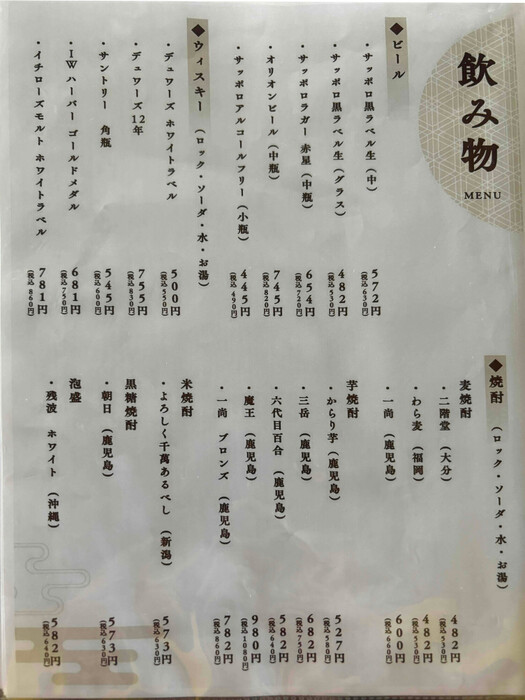 飲み物
MENU
◆ビール
・サッポロ黒ラベル生（中） 572円（税込 630円）
・サッポロ黒ラベル生（グラス） 482円（税込 530円）
・サッポロラガー 赤星（中瓶） 654円（税込 720円）
・オリオンビール（中瓶） 745円（税込 820円）
・サッポロアルコールフリー（小瓶） 445円（税込 490円）
◆ウィスキー（ロック・ソーダ・水・お湯）
・デュワーズ ホワイトラベル 500円（税込 550円）
・デュワーズ 12年 755円（税込 830円）
・サントリー 角瓶 545円（税込 600円）
・IW ハーパー ゴールドメダル 681円（税込 750円）
・イチローズモルト ホワイトラベル 781円（税込 860円）
◆焼酎（ロック・ソーダ・水・お湯）
麦焼酎
・二階堂（大分） 482円（税込 530円）
・わら麦（福岡） 482円（税込 530円）
・一尚（鹿児島） 600円（税込 660円）
芋焼酎
・からり芋（鹿児島） 527円（税込 580円）
・三岳（鹿児島） 682円（税込 750円）
・六代目百合（鹿児島） 582円（税込 640円）
・魔王（鹿児島） 980円（税込 1080円）
・一尚 ブロンズ（鹿児島） 782円（税込 860円）
米焼酎
・よろしく千萬あるべし（新潟） 573円（税込 630円）
黒糖焼酎
・朝日（鹿児島） 573円（税込 630円）
泡盛
・残波 ホワイト（沖縄） 582円（税込 640円）